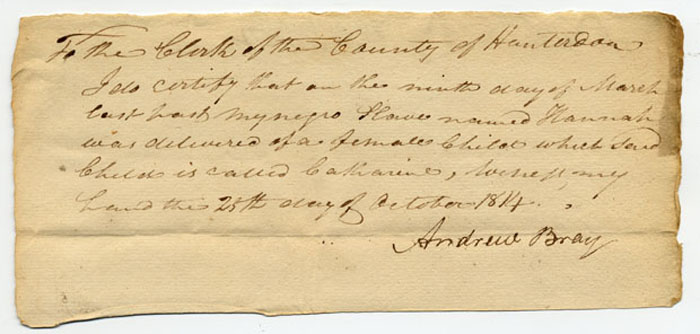 To the Clerk of the County of Hunterdon
I do certify that on the ninth day of March
last past my negro Slave named Hannah
was delivered of a female Child which Said
Child is called Catharine, Witness my
hand the 28th day of October 1814.
Andrew Bray